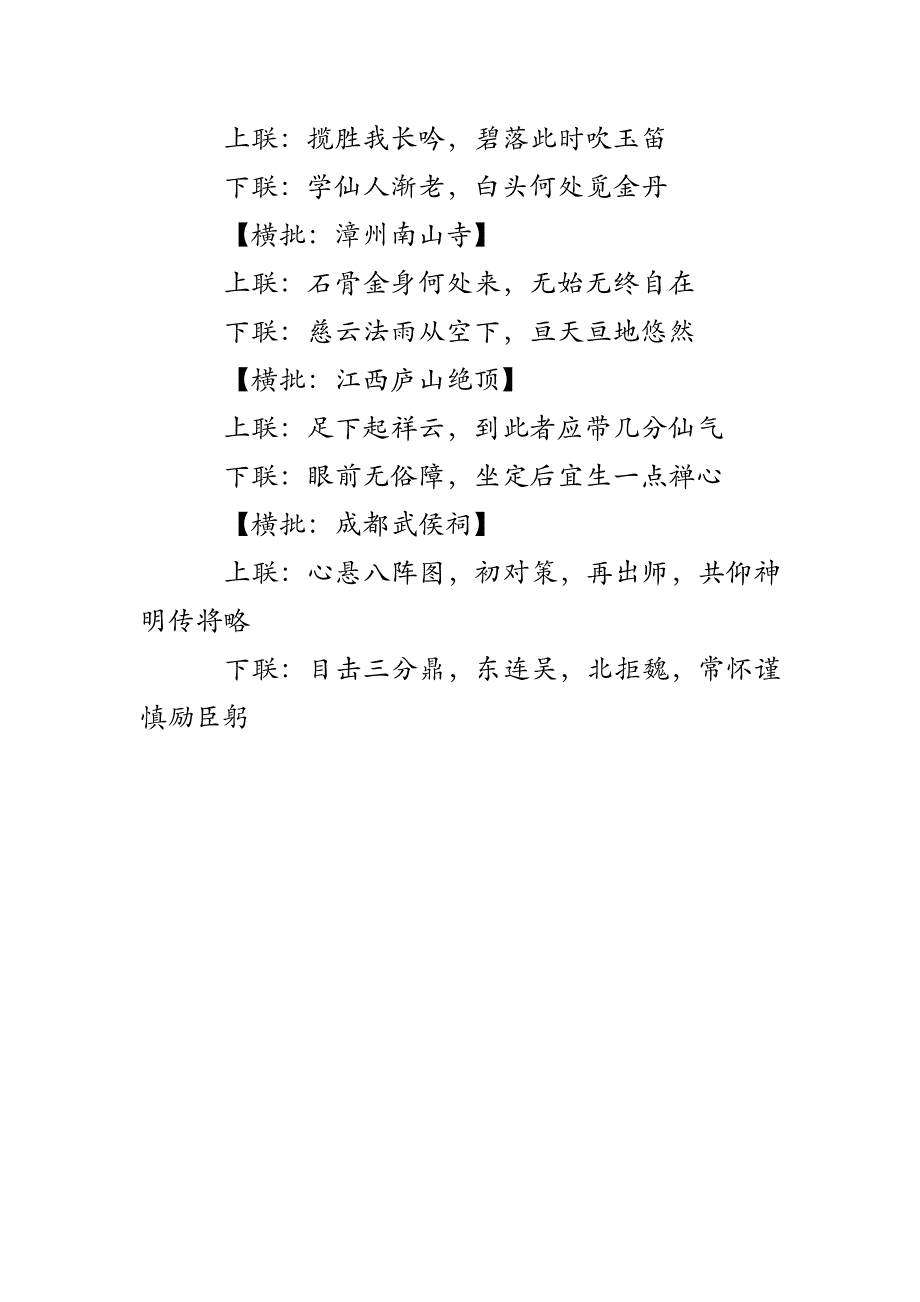 上联：揽胜我长吟，碧落此时吹玉笛
下联：学仙人渐老，白头何处觅金丹
【横批：漳州南山寺】
上联：石骨金身何处来，无始无终自在
下联：慈云法雨从空下，亘天亘地悠然
【横批：江西庐山绝顶】
上联：足下起祥云，到此者应带几分仙气
下联：眼前无俗障，坐定后宜生一点禅心
【横批：成都武侯祠】
上联：心悬八阵图，初对策，再出师，共仰神
明传将略
下联：目击三分鼎，东连吴，北拒魏，常怀谨
慎励臣躬